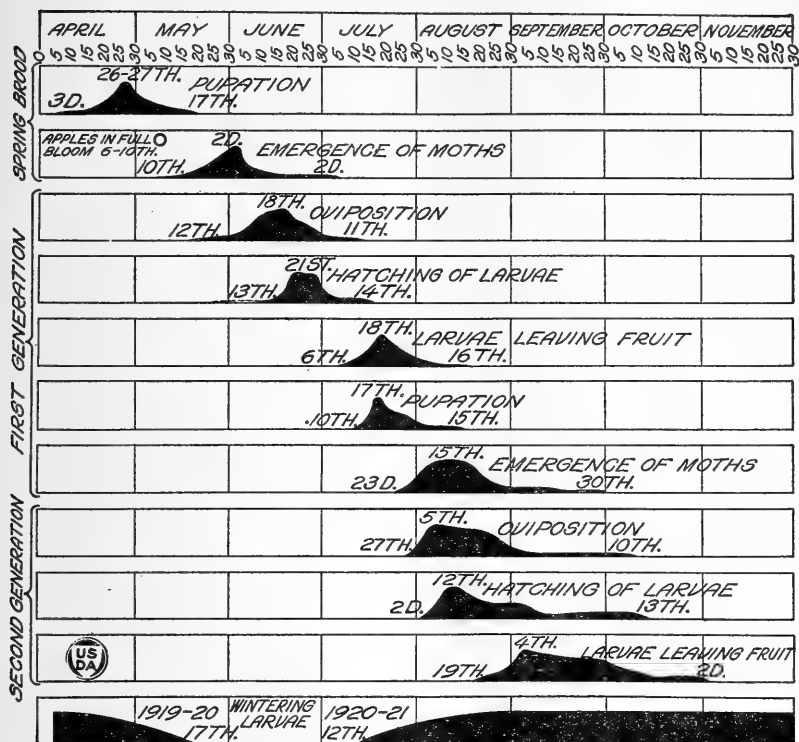 APRIL MAY JUNE JULY AUGUST SEPTEMBER OCTOBER NOVEMBER
0 5 10 15 20 25 30 5 10 15 20 25 30 5 10 15 20 25 30 5 10 15 20 25 30 5 10 15 20 25 30 5 10 15 20 25 30 5 10 15 20 25 30 5 10 15 20 25 30
SPRING BROOD
26-27TH. PUPATION
3D. 17TH.
APPLES IN FULL O 2D. EMERGENCE OF MOTHS
BLOOM 6-10TH. 10TH. 2D.
FIRST GENERATION
18TH. OVIPOSITION
12TH. 11TH.
21ST. HATCHING OF LARVAE
13TH. 14TH.
18TH. LARVAE LEAVING FRUIT
6TH. 16TH.
17TH. PUPATION
10TH. 15TH.
15TH. EMERGENCE OF MOTHS
23D. 30TH.
SECOND GENERATION
5TH. OVIPOSITION
27TH. 10TH.
12TH. HATCHING OF LARVAE
2D. 13TH.
US
DA
4TH. LARVAE LEAVING FRUIT
19TH. 2D.
1919-20 WINTERING 1920-21
17TH. LARVAE 12TH.